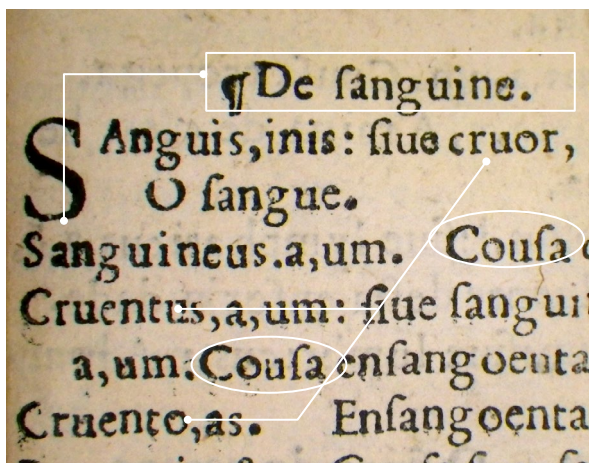 ¶ De ſanguine.
SAnguis,inis: ſiue cruor,
O ſangue.
Sanguineus.a,um. Couſa
Cruentus,a,um: ſiue ſangui
a,um. Couſa enſangoenta
Cruento,as. Enſangoenta